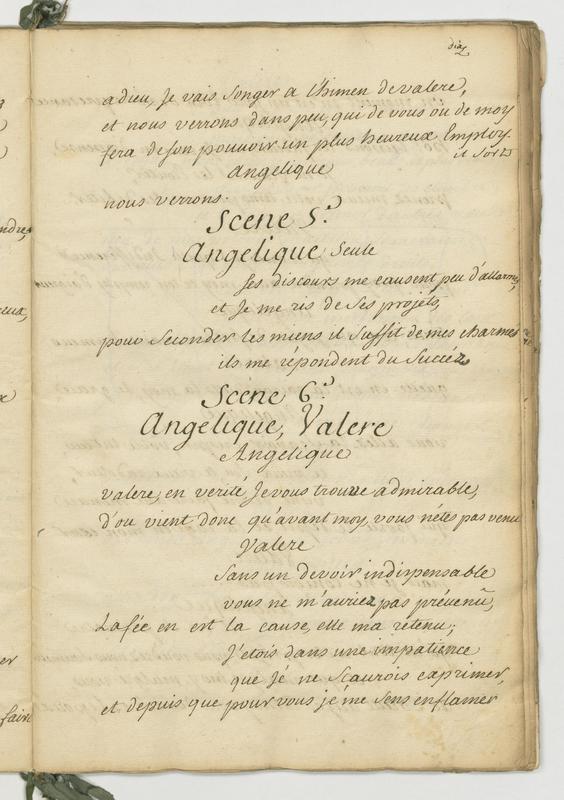 dix
adieu, Je vais Songer a l'himen de valere,
et nous verrons dans peu, qui de vous ou de moy
fera de Son pouvoir un plus heureux Employ.
il Sort
Angelique
nous verrons.
Scene 5.e
Angelique Seule
Ses discours me causent peu d'allarmes,
et Je me ris de Ses projets,
pour Seconder les miens il Suffit de mes charmes
ils me répondent du Succéz
Scene 6.e
Angelique, Valere
Angelique
valere, en verité Je vous trouve admirable,
d'ou vient donc qu'avant moy, vous n'étes pas venu
Valere
Sans un devoir indispensable
vous ne m'auriez pas prévenu,
La fée en est la cause, elle ma retenu;
J'etois dans une impatience
que Je ne Scaurois exprimer,
et depuis que pour vous je me Sens enflamer